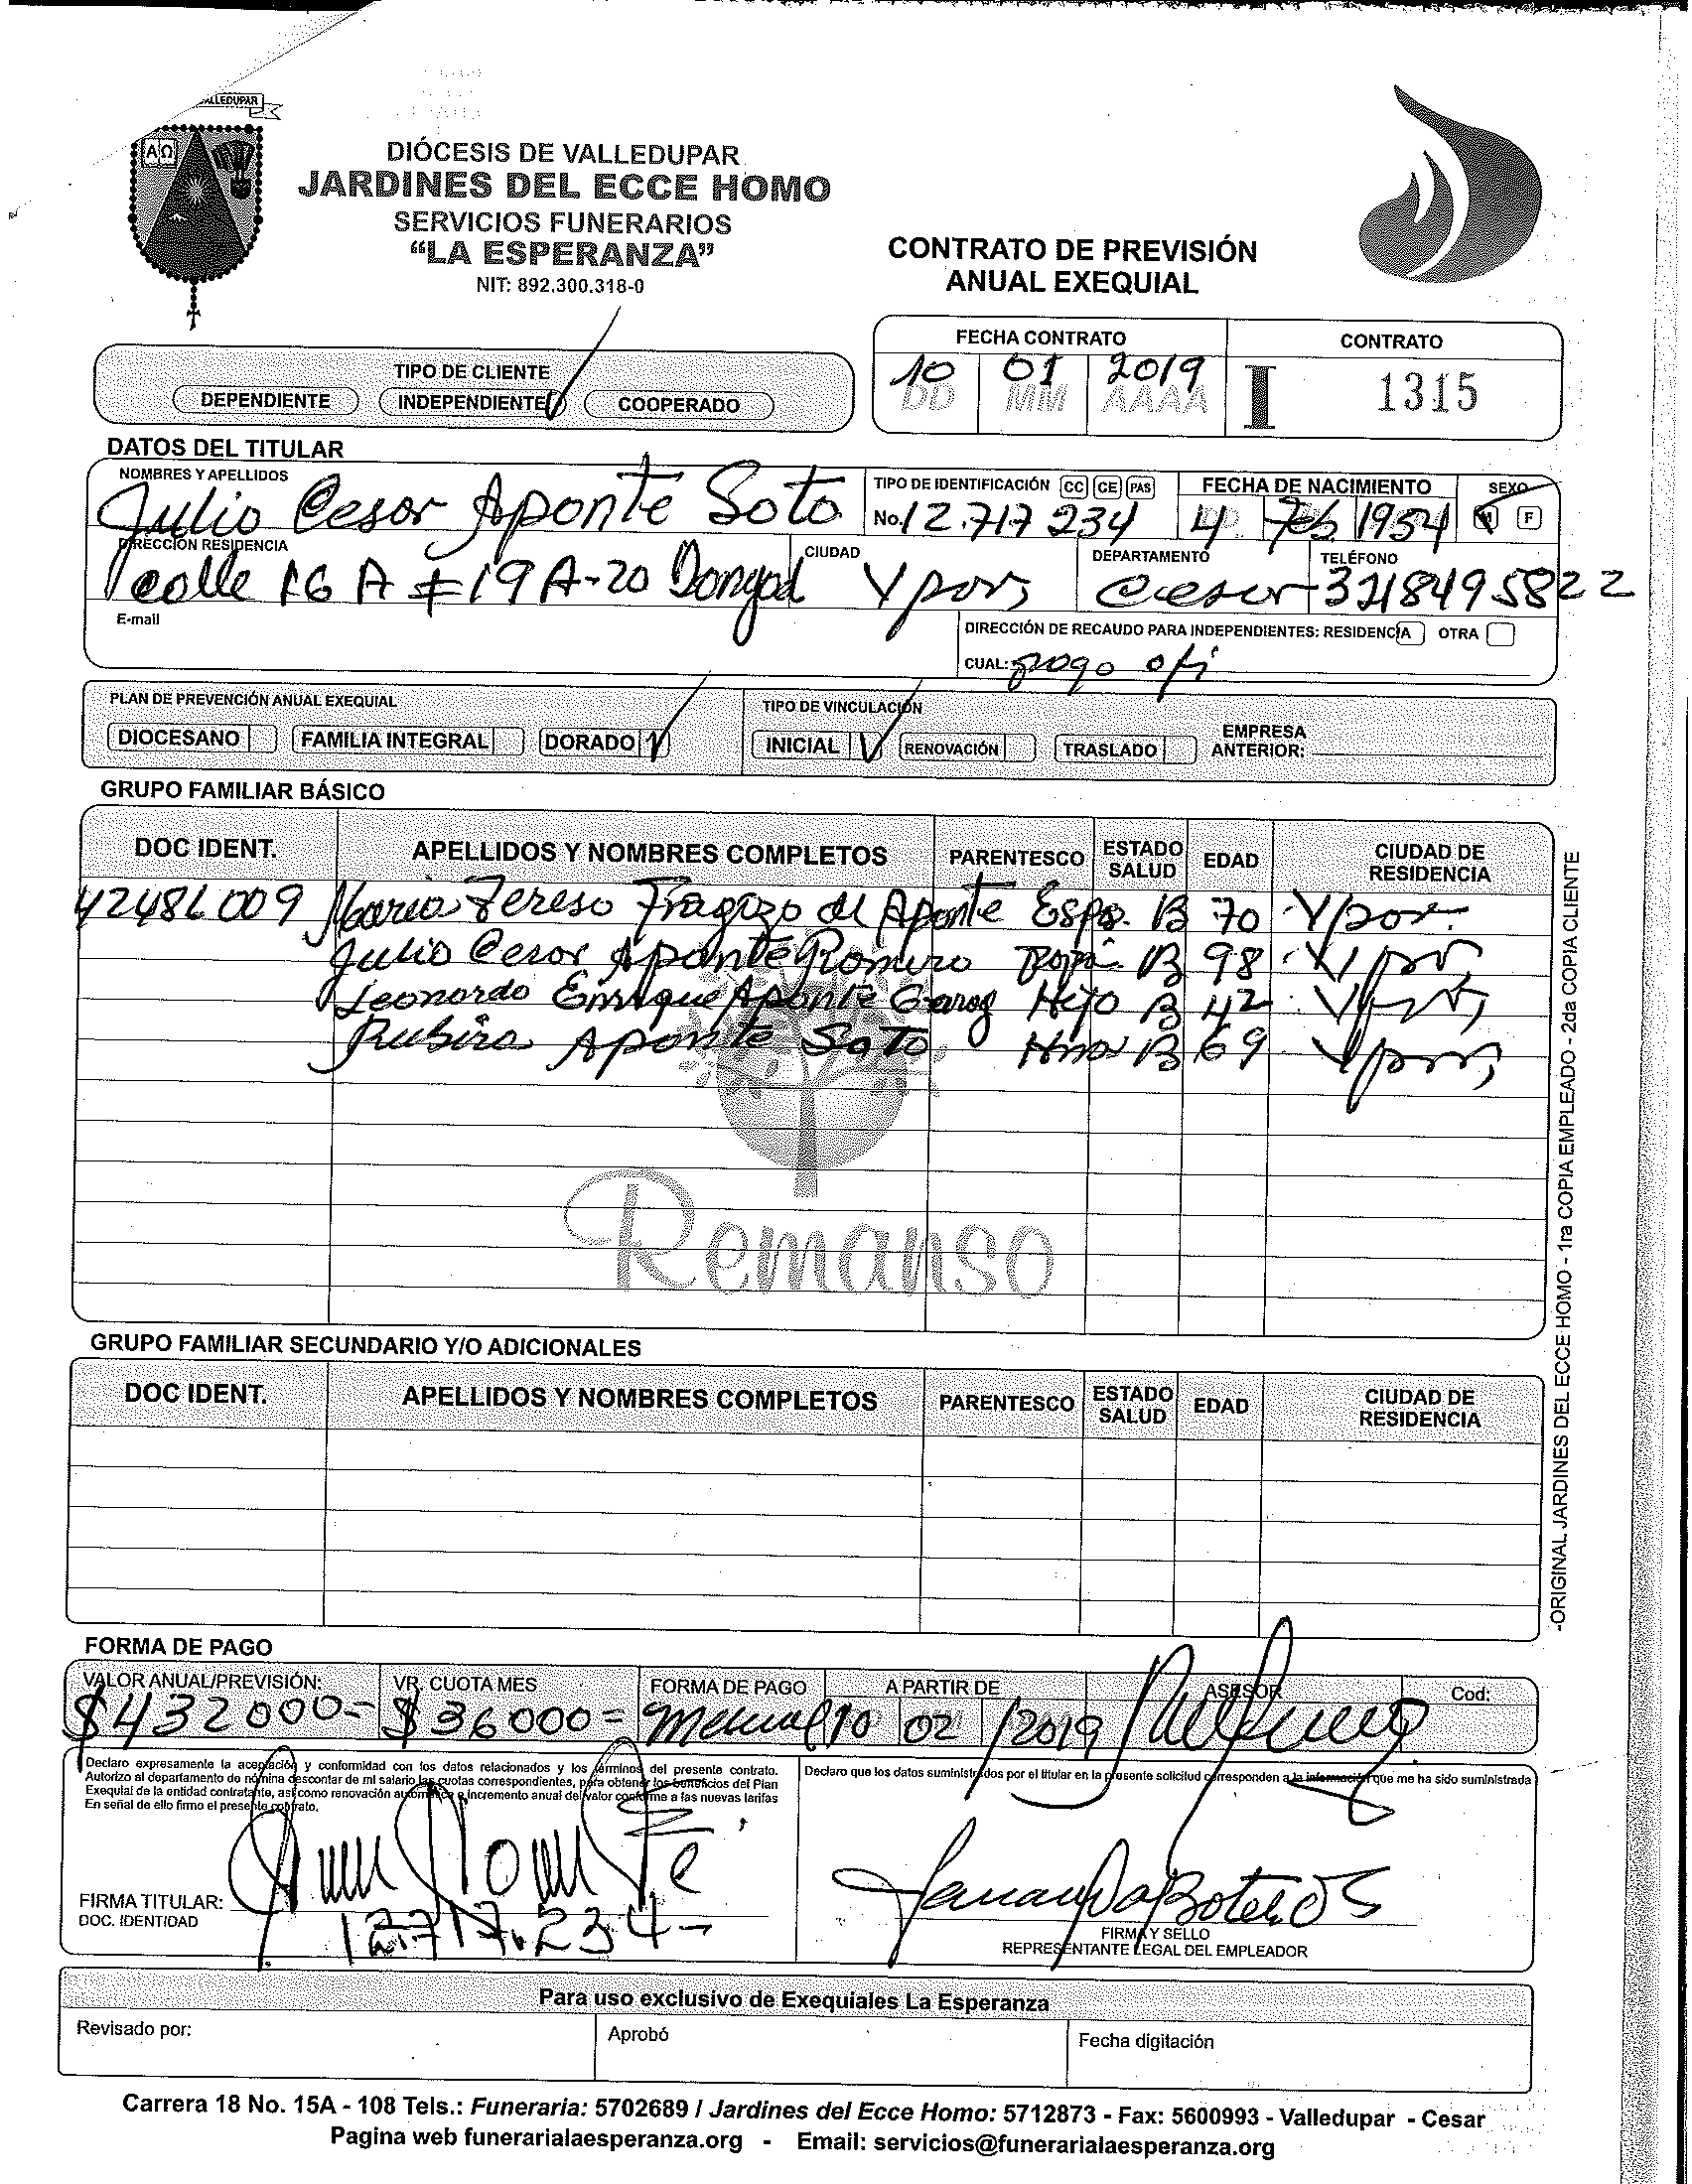 VALLEDUPAR
AΩ
DIÓCESIS DE VALLEDUPAR
JARDINES DEL ECCE HOMO
SERVICIOS FUNERARIOS
“LA ESPERANZA”
NIT: 892.300.318-0
CONTRATO DE PREVISIÓN
ANUAL EXEQUIAL
FECHA CONTRATO CONTRATO
10 01 2019
DD MM AAAA
I 1315
TIPO DE CLIENTE
DEPENDIENTE INDEPENDIENTE COOPERADO
DATOS DEL TITULAR
NOMBRES Y APELLIDOS
Julio Cesar Aponte Soto
TIPO DE IDENTIFICACIÓN CC CE PAS
No. 12.717 234
FECHA DE NACIMIENTO
4 Feb 1954
SEXO
M F
DIRECCIÓN RESIDENCIA
calle 16 A # 19 A-20
CIUDAD
Vpar
DEPARTAMENTO
Cesar
TELÉFONO
3218495822
E-mail
DIRECCIÓN DE RECAUDO PARA INDEPENDIENTES: RESIDENCIA OTRA
CUAL: pago ofi
PLAN DE PREVENCIÓN ANUAL EXEQUIAL
DIOCESANO FAMILIA INTEGRAL DORADO
TIPO DE VINCULACIÓN
INICIAL RENOVACIÓN TRASLADO
EMPRESA
ANTERIOR:
GRUPO FAMILIAR BÁSICO
DOC IDENT. APELLIDOS Y NOMBRES COMPLETOS PARENTESCO ESTADO SALUD EDAD CIUDAD DE RESIDENCIA
Maria Tereso Fragozo de Aponte Espo. B 70 Vpar
Julio Cesar Aponte Romero Papá B 98 Vpar
Leonardo Enrique Aponte Hijo B 42 Vpar
Rubira Aponte Soto Hna B 69 Vpar
Remanso
GRUPO FAMILIAR SECUNDARIO Y/O ADICIONALES
DOC IDENT. APELLIDOS Y NOMBRES COMPLETOS PARENTESCO ESTADO SALUD EDAD CIUDAD DE RESIDENCIA
-ORIGINAL JARDINES DEL ECCE HOMO - 1ra COPIA EMPLEADO - 2da COPIA CLIENTE
FORMA DE PAGO
VALOR ANUAL/PREVISIÓN: VR. CUOTA MES FORMA DE PAGO A PARTIR DE ASESOR Cod:
$432000= $36000= mensual 10 02 2019
Declaro expresamente la aceptación y conformidad con los datos relacionados y los términos del presente contrato.
Autorizo al departamento de nómina descontar de mi salario las cuotas correspondientes, para obtener los beneficios del Plan
Exequial de la entidad contratante, así como renovación automática e incremento anual del valor conforme a las nuevas tarifas
En señal de ello firmo el presente contrato.
Declaro que los datos suministrados por el titular en la presente solicitud corresponden a la información que me ha sido suministrada
FIRMA TITULAR:
DOC. IDENTIDAD
12.717.234-
FIRMA Y SELLO
REPRESENTANTE LEGAL DEL EMPLEADOR
Para uso exclusivo de Exequiales La Esperanza
Revisado por: Aprobó Fecha digitación
Carrera 18 No. 15A - 108 Tels.: Funeraria: 5702689 / Jardines del Ecce Homo: 5712873 - Fax: 5600993 - Valledupar - Cesar
Pagina web funerarialaesperanza.org - Email: servicios@funerarialaesperanza.org